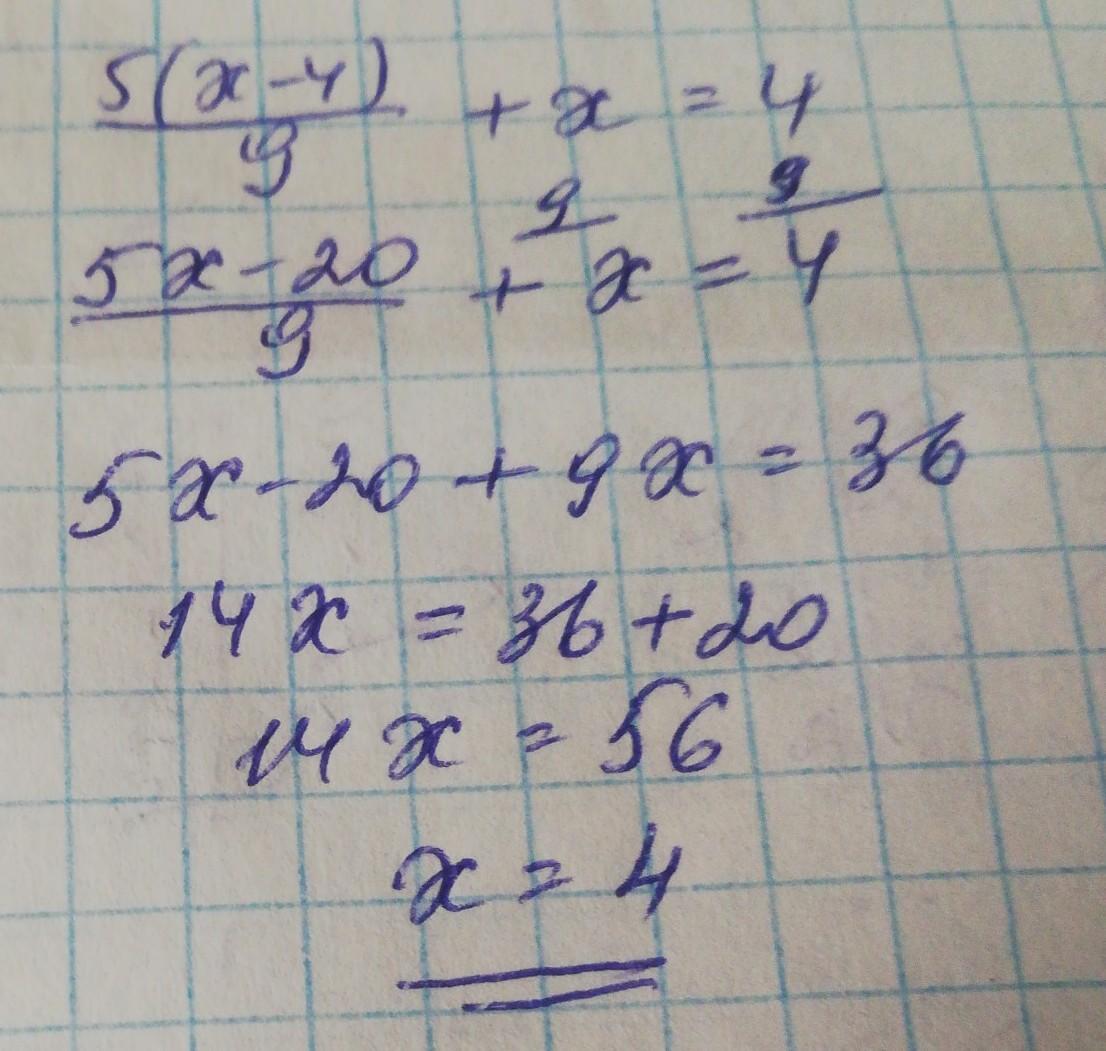 5(x-4)
9
+ x = 4
9 9
5x-20
9
+ x = 4
5x-20+9x=36
14x=36+20
14x=56
x=4